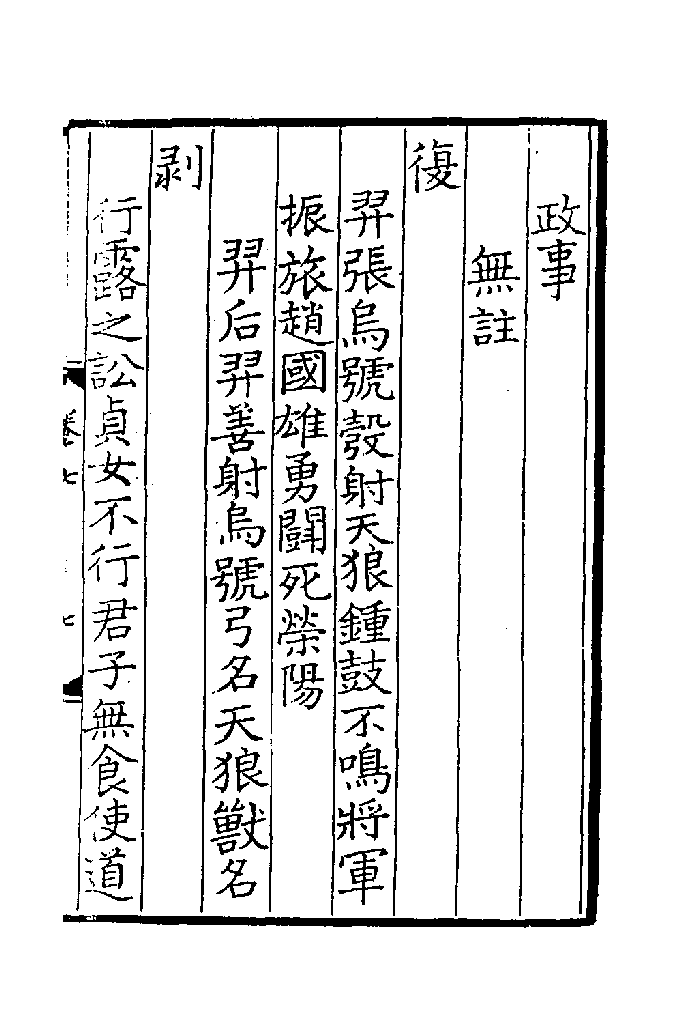 政事
無註
復
羿張烏號彀射天狼鍾鼓不鳴將軍
振旅趙國雄勇鬬死滎陽
羿后羿善射烏號弓名天狼獸名
剥
行露之訟貞女不行君子無食使道
卷七
七